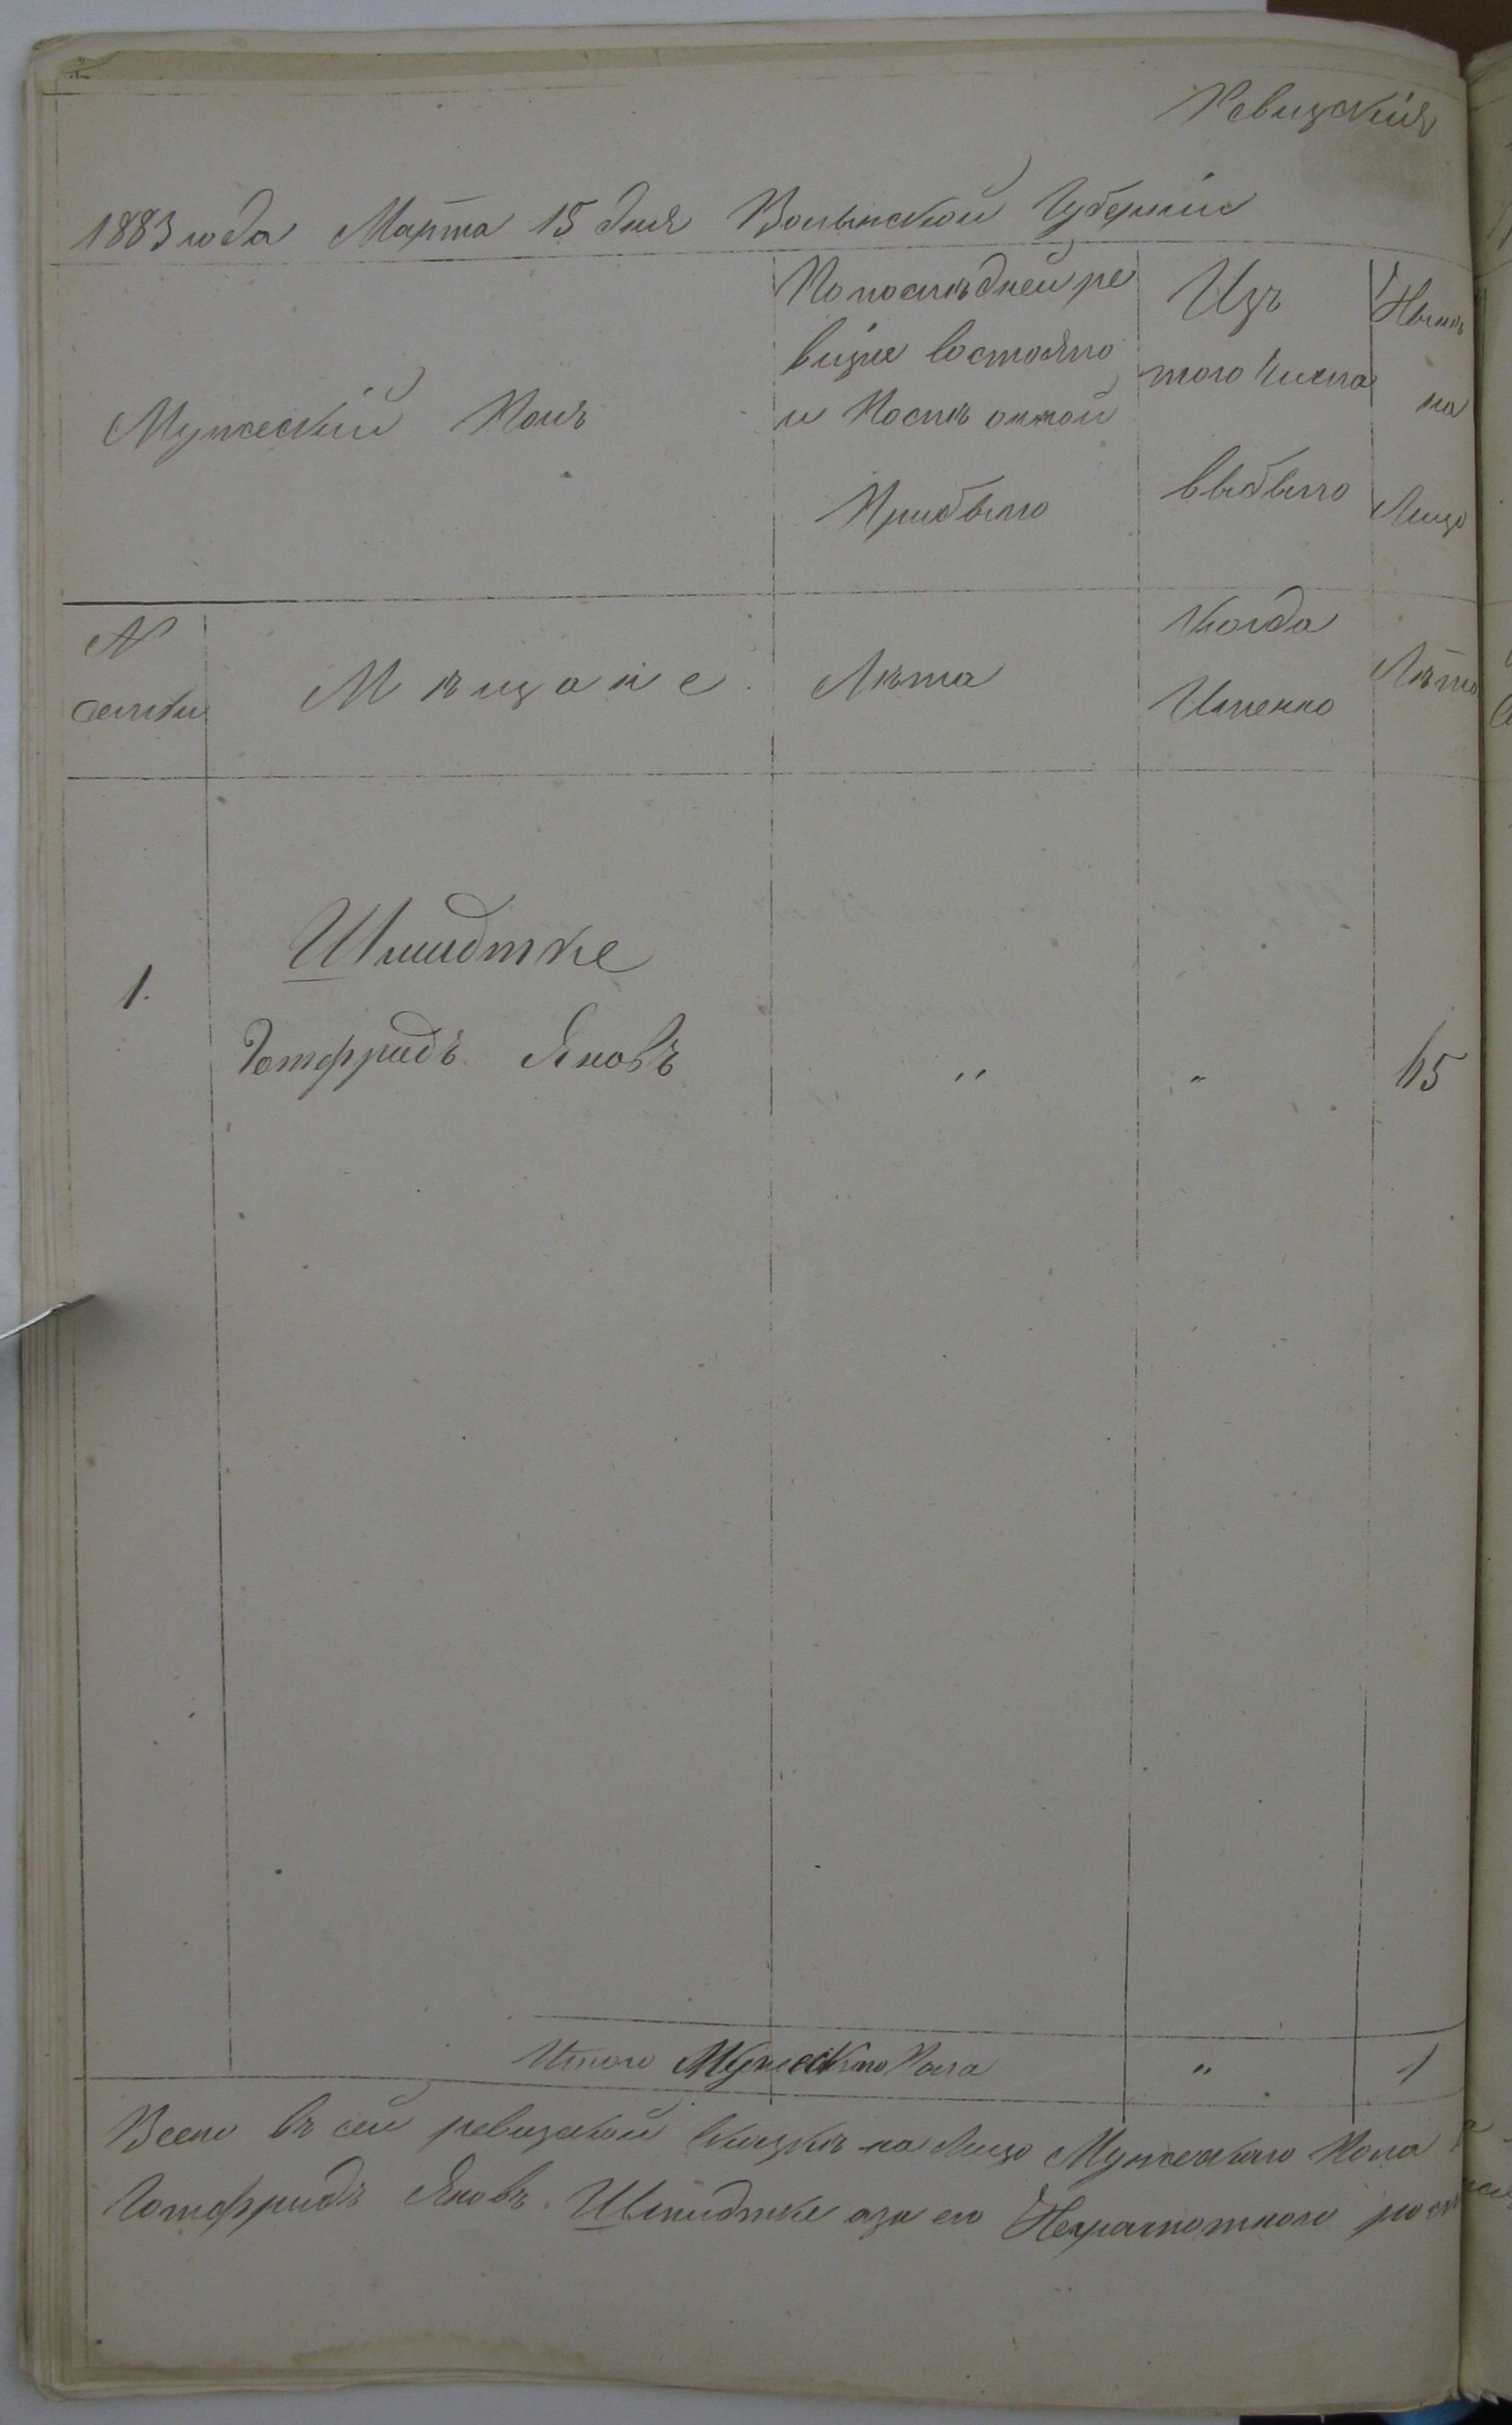 Ревизскія
1883 года Марта 15 дня Волынской Губерніи
Мужескій Полъ
По послѣдней ре
визіи состояло
и Послѣ оной
Прибыло
Изъ
того Числа
выбыло
Нынѣ
на
Лицо
№
семьи
Мѣщане.
Лѣта
Когда
Именно
Лѣта
1.
Шмидтке
Готфридъ Яковъ " " 65
Итого Мужескаго Пола " 1
Всего въ сей ревизской сказкѣ на Лицо Мужескаго Пола
Готфридъ Яковъ Шмидтке аза его Неграмотнаго